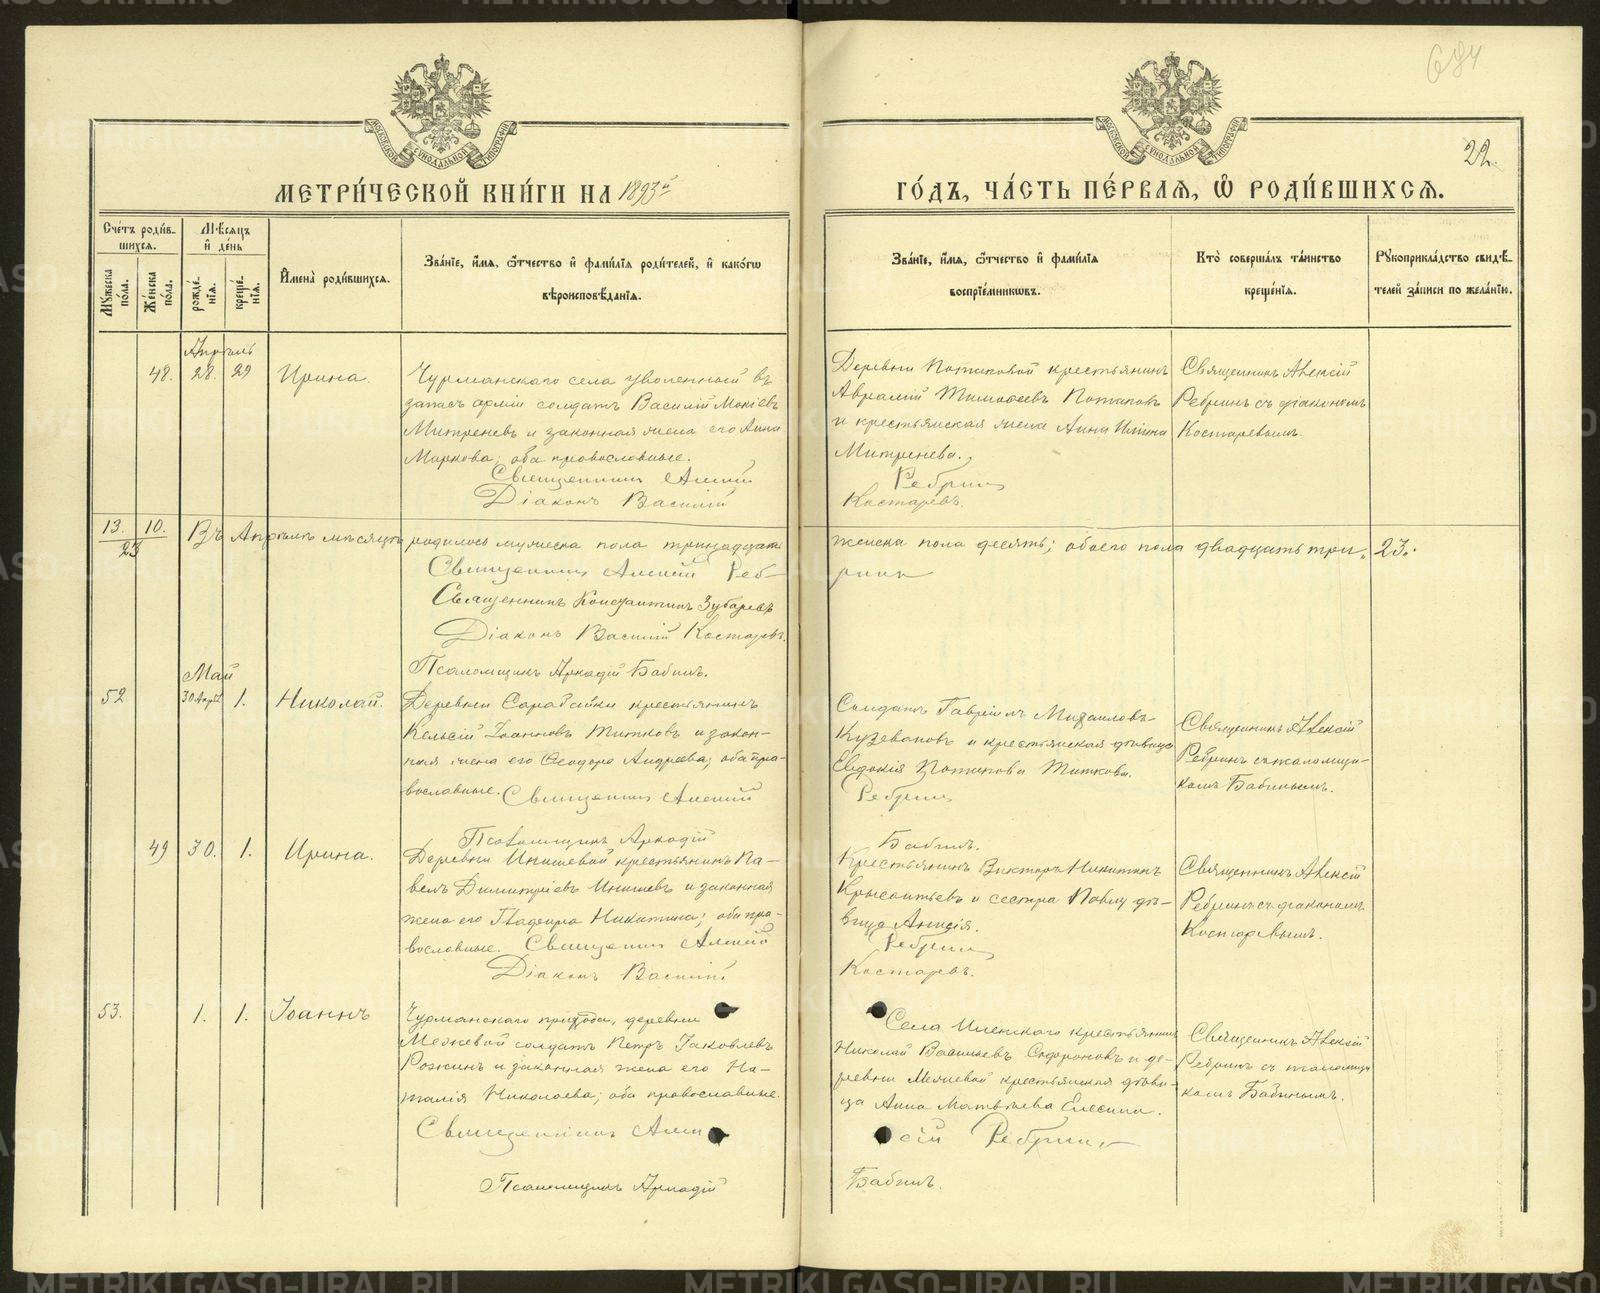 684
22.
МОСКОВСКОЙ СѴНОДАЛЬНОЙ ТИПОГРАФІИ
МОСКОВСКОЙ СѴНОДАЛЬНОЙ ТИПОГРАФІИ
МЕТРИ́ЧЕСКОЙ КНИ́ГИ НА 1893й
ГО́ДЪ, ЧА́СТЬ ПЕ́РВАѦ, Ѡ҆ РОДИ́ВШИХСѦ.
Сче́тъ роди́в-
шихсѧ.
Мꙋ́жеска
по́ла.
Же́нска
по́ла.
Мѣ́сѧцъ
и҆ де́нь
рожде́-
нїѧ.
креще́-
нїѧ.
И҆мена̀ роди́вшихсѧ.
Зва́нїе, и҆́мѧ, ѻ҆́тчество и҆ фами́лїѧ роди́телей, и҆ како́гѡ
вѣроисповѣ́данїѧ.
Зва́нїе, и҆́мѧ, ѻ҆́тчество и҆ фами́лїѧ
воспрїе́мникѡвъ.
Кто̀ соверша́лъ та́инство
креще́нїѧ.
Рꙋкоприкла́дство свидѣ́-
телей за́писи по жела́нїю.
Апрѣль
48. 28. 29 Ирина.
Чурманскаго села уволенный въ
запасъ арміи солдатъ Василій Мокіевъ
Митреневъ и законная жена его Анна
Маркова; оба православные.
Священникъ Алексій
Діаконъ Василій
Деревни Потаповой крестьянинъ
Авраамій Тимофеевъ Потаповъ
и крестьянская жена Анна Ильина
Митренева.
Ребринъ
Костаревъ.
Священникъ Алексій
Ребринъ съ діакономъ
Костаревымъ.
13. 10.
23
Въ Апрѣлѣ мѣсяцѣ родилось мужеска пола тринадцать
женска пола десять; обоего пола двадцать три. 23.
Священникъ Алексій Реб-
ринъ
Священникъ Константинъ Зубаревъ
Діаконъ Василій Костаревъ.
Псаломщикъ Аркадій Бабинъ.
Май
52 30 Апрѣля 1. Николай.
Деревни Сарабайки крестьянинъ
Кельсій Іоанновъ Титковъ и закон-
ная жена его Ѳеодора Андреева; оба пра-
вославные. Священникъ Алексій
Псаломщикъ Аркадій
Солдатъ Гавріилъ Михаиловъ
Кузевановъ и крестьянская дѣвица
Евдокія Потапова Титкова.
Ребринъ
Бабинъ.
Священникъ Алексій
Ребринъ съ псаломщи-
комъ Бабинымъ.
49 30. 1. Ирина.
Деревни Инишевой крестьянинъ Па-
велъ Димитріевъ Инишевъ и законная
жена его Гладфира Никитина; оба пра-
вославные. Священникъ Алексій
Діаконъ Василій
Крестьянинъ Викторъ Никитинъ
и сестра Павлу дѣ-
вица Анисія.
Ребринъ
Костаревъ.
Священникъ Алексій
Ребринъ съ діакономъ
Костаревымъ.
53. 1. 1. Іоаннъ
Чурманскаго прихода, деревни
Межевой солдатъ Петръ Іаковлевъ
Рожинъ и законная жена его На-
талія Николаева; оба православные.
Священникъ Алек
сій Ребринъ
Псаломщикъ Аркадій
Бабинъ.
Села Иленскаго крестьянинъ
Николай Васильевъ Сидоровъ и де-
ревни Межевой крестьянская дѣви-
ца Анна Матвѣева Елесина.
Священникъ Алексій
Ребринъ съ псаломщи
комъ Бабинымъ.
METRIKI.GASO-URAL.RU